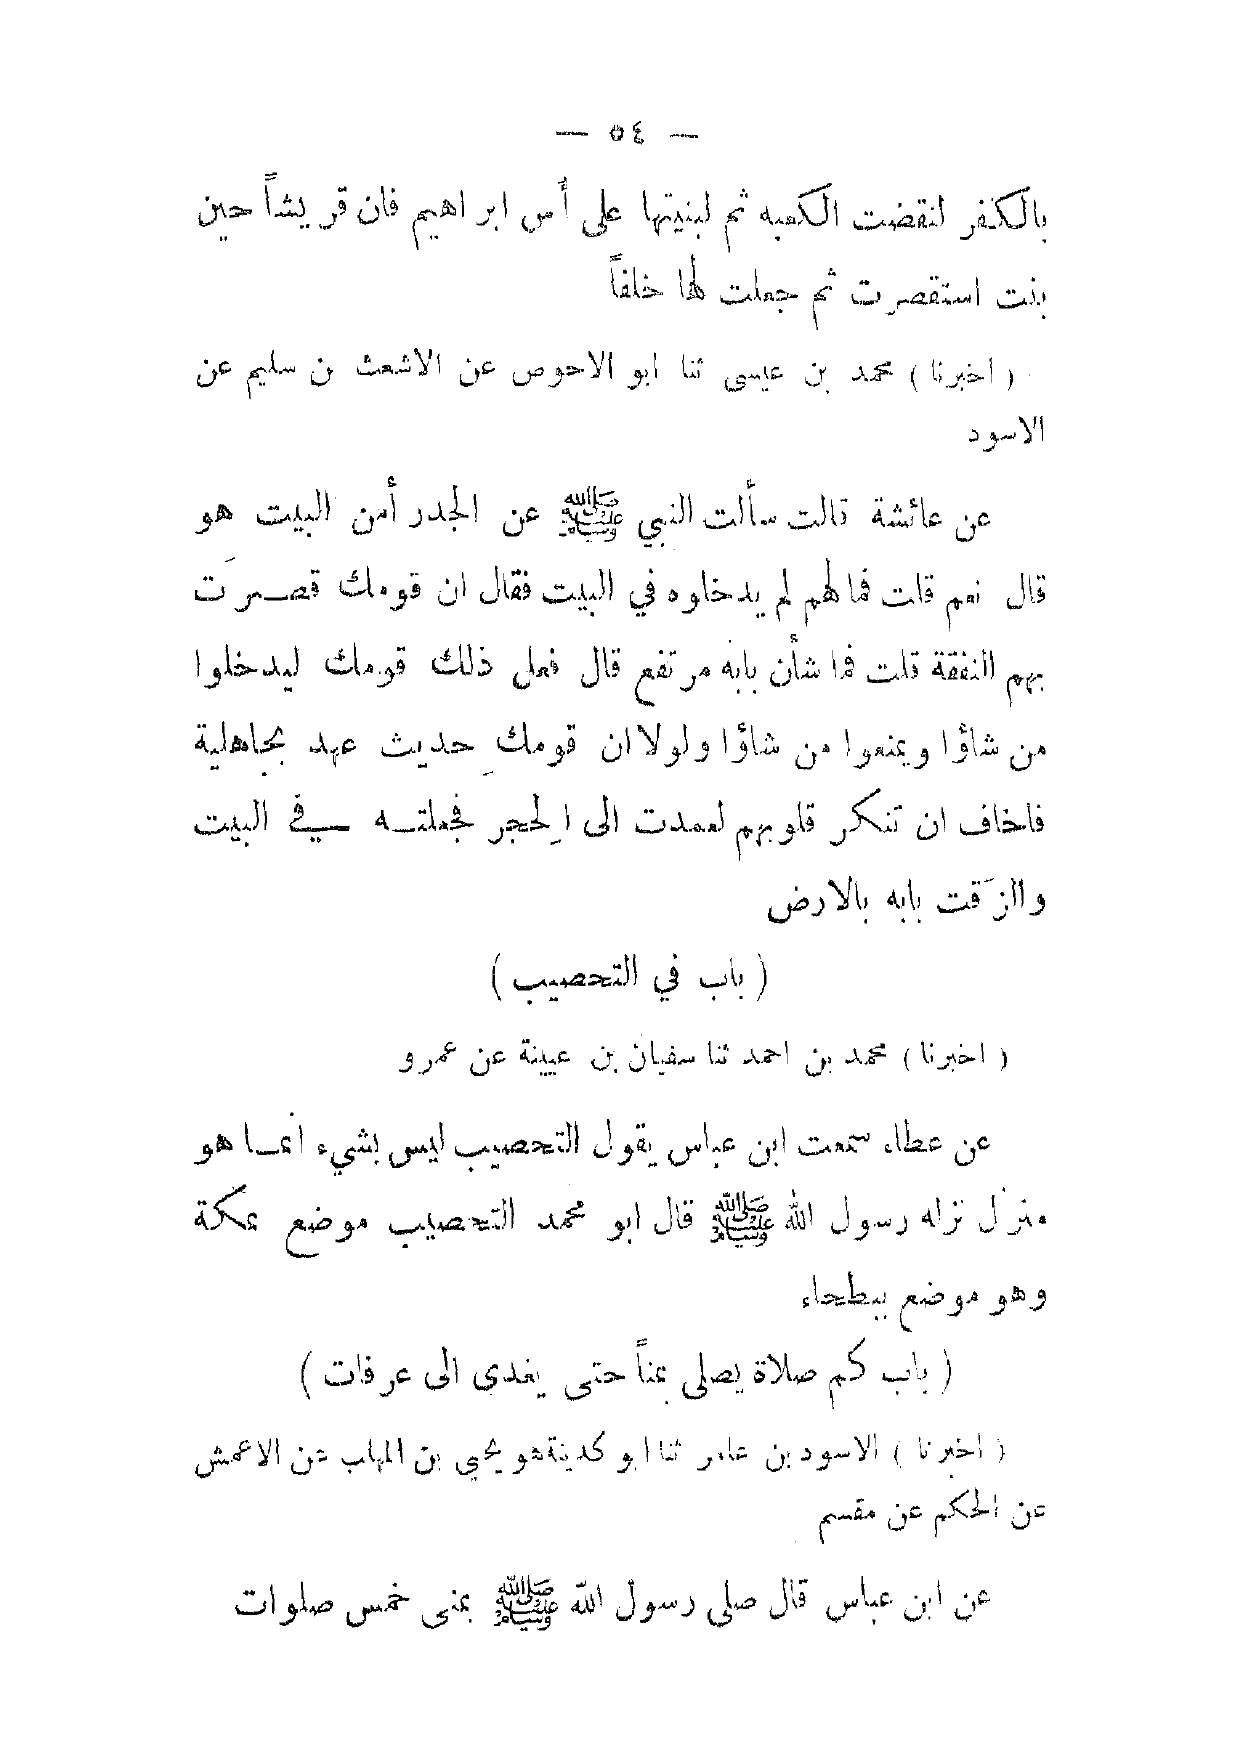 — ٥٤ —
بالكفر لنقضت الكعبه ثم لبنيتها على أس ابراهيم فان قريشاً حين
بنت استقصرت ثم جعلت لها خلفاً
( اخبرنا ) محمد بن عيسى ثنا ابو الاحوص عن الاشعث بن سليم عن
الاسود
عن عائشة قالت سألت النبي ﷺ عن الجدر أمن البيت هو
قال نعم قلت فما لهم لم يدخلوه في البيت فقال ان قومك قصرَت
بهم النفقة قلت فما شأن بابه مرتفع قال فعل ذلك قومك ليدخلوا
من شاؤا ويمنعوا من شاؤا ولولا ان قومك حديثِ عهد بجاهلية
فاخاف ان تنكر قلوبهم لعمدت الى الحِجر فجعلته في البيت
والزَقت بابه بالارض
( باب في التحصيب )
( اخبرنا ) محمد بن احمد ثنا سفيان بن عيينة عن عمرو
عن عطاء سمعت ابن عباس يقول التحصيب ليس بشيء انما هو
منزل نزله رسول الله ﷺ قال ابو محمد التحصيب موضع بمكة
وهو موضع ببطحاء
( باب كم صلاة يصلي بمناً حتى يغدى الى عرفات )
( اخبرنا ) الاسود بن عامر ثنا ابو كدينة هو يحيي بن المهلب عن الاعمش
عن الحكم عن مقسم
عن ابن عباس قال صلى رسول الله ﷺ بمنى خمس صلوات